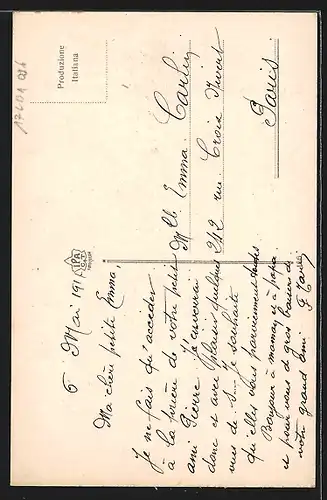 17601 026
Produzione
Italiana
6 Mai 191
Ma chère petite Emma,
Je ne fais qu'accéder
à la prière de votre petit
ami Pierre. Je enverrai
donc et avec plaisir quelques
vues de S... Je souhaite
qu'elles vous parviennent toutes
Bonjour à maman et à papa
et pour vous de gros baisers de
votre grand ami
Mlle Emma
242 rue Croix Nivert
Paris